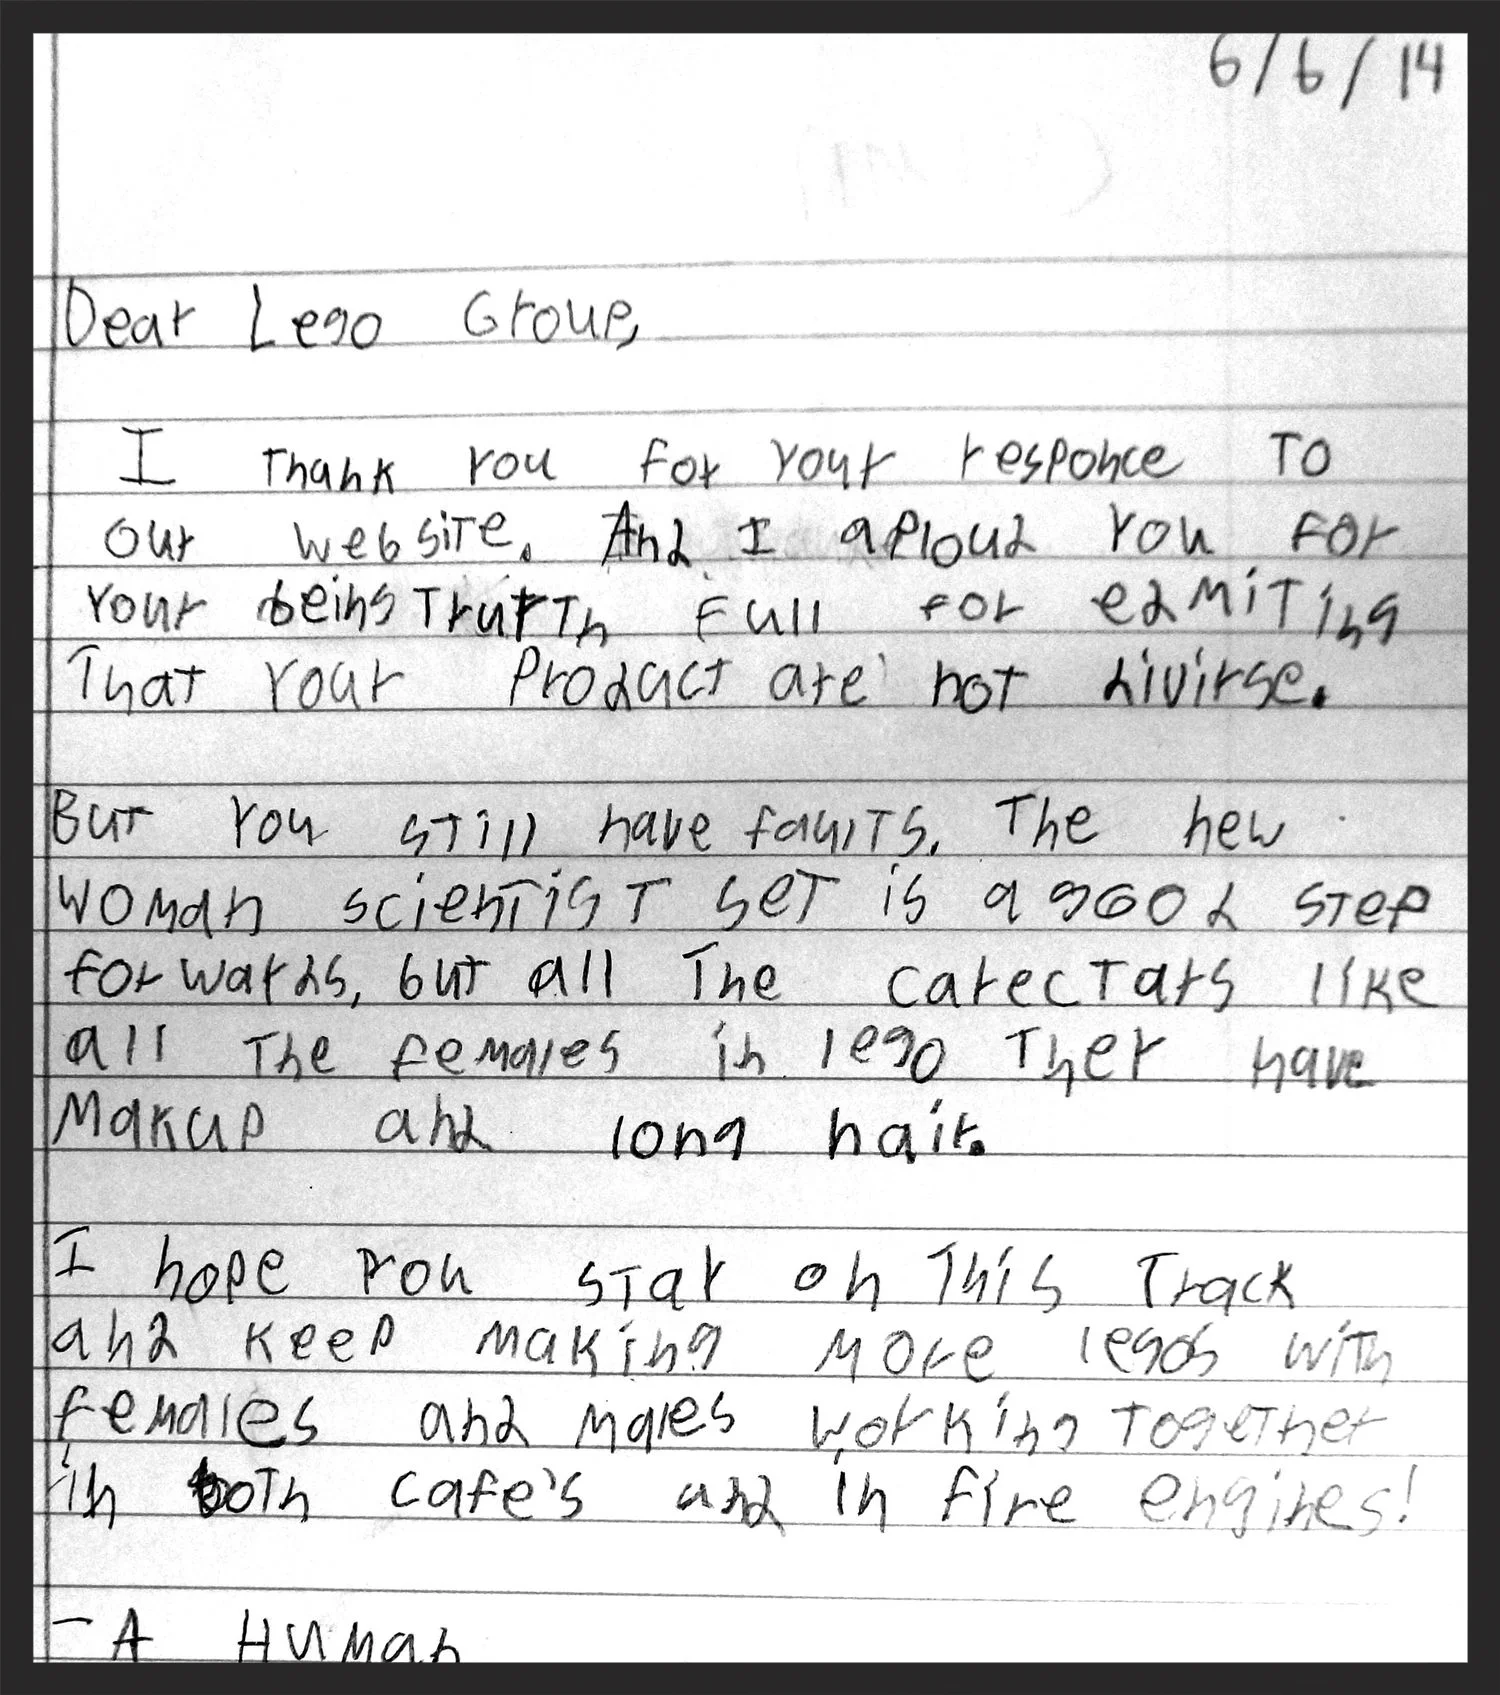 6/6/14
Dear Lego Group,
I thank you for your responce to
our website. And I aploud you for
your being truth full for edmiting
that your product are not divirse.
But you still have faults. The new
woman scientist set is a good step
forwards, but all the carectars like
all the females in lego ther have
makup and long hair.
I hope you stay on this track
and keep making more legos with
females and males working together
in both cafe's and in fire engines!
- A Human